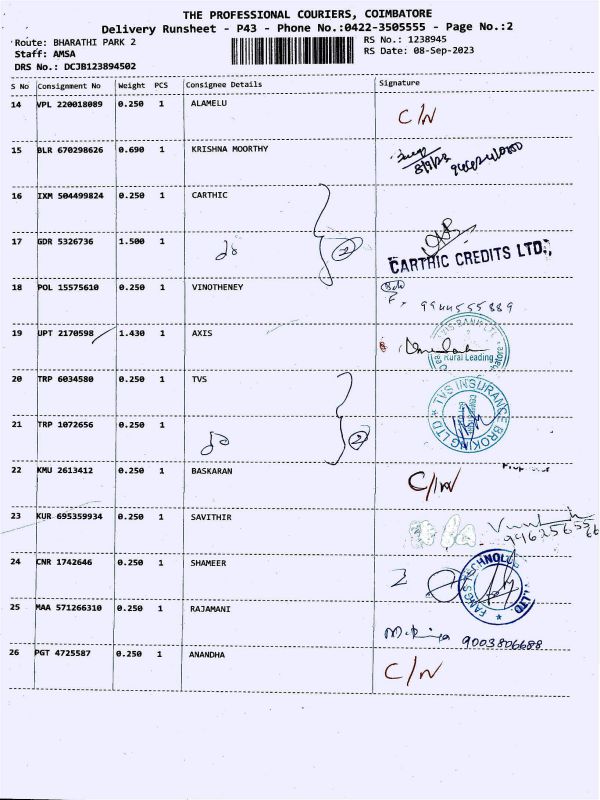 THE PROFESSIONAL COURIERS, COIMBATORE
Delivery Runsheet - P43 - Phone No.:0422-3505555 - Page No.:2
Route: BHARATHI PARK 2 RS No.: 1238945
Staff: AMSA RS Date: 08-Sep-2023
DRS No.: DCJB123894502
S No Consignment No Weight PCS Consignee Details Signature
14 VPL 220018089 0.250 1 ALAMELU C/N
15 BLR 670298626 0.690 1 KRISHNA MOORTHY 8/9/23
16 IXM 504499824 0.250 1 CARTHIC
17 GDR 5326736 1.500 1 do 2 CARTHIC CREDITS LTD.,
18 POL 15575610 0.250 1 VINOTHENEY 9944555889
19 UPT 2170598 1.430 1 AXIS Rural Leading
20 TRP 6034580 0.250 1 TVS TVS INSURANCE BROKING LTD
21 TRP 1072656 0.250 1 do 2
22 KMU 2613412 0.250 1 BASKARAN C/N
23 KUR 695359934 0.250 1 SAVITHIR
24 CNR 1742646 0.250 1 SHAMEER 2
25 MAA 571266310 0.250 1 RAJAMANI 9003806688
26 PGT 4725587 0.250 1 ANANDHA C/N